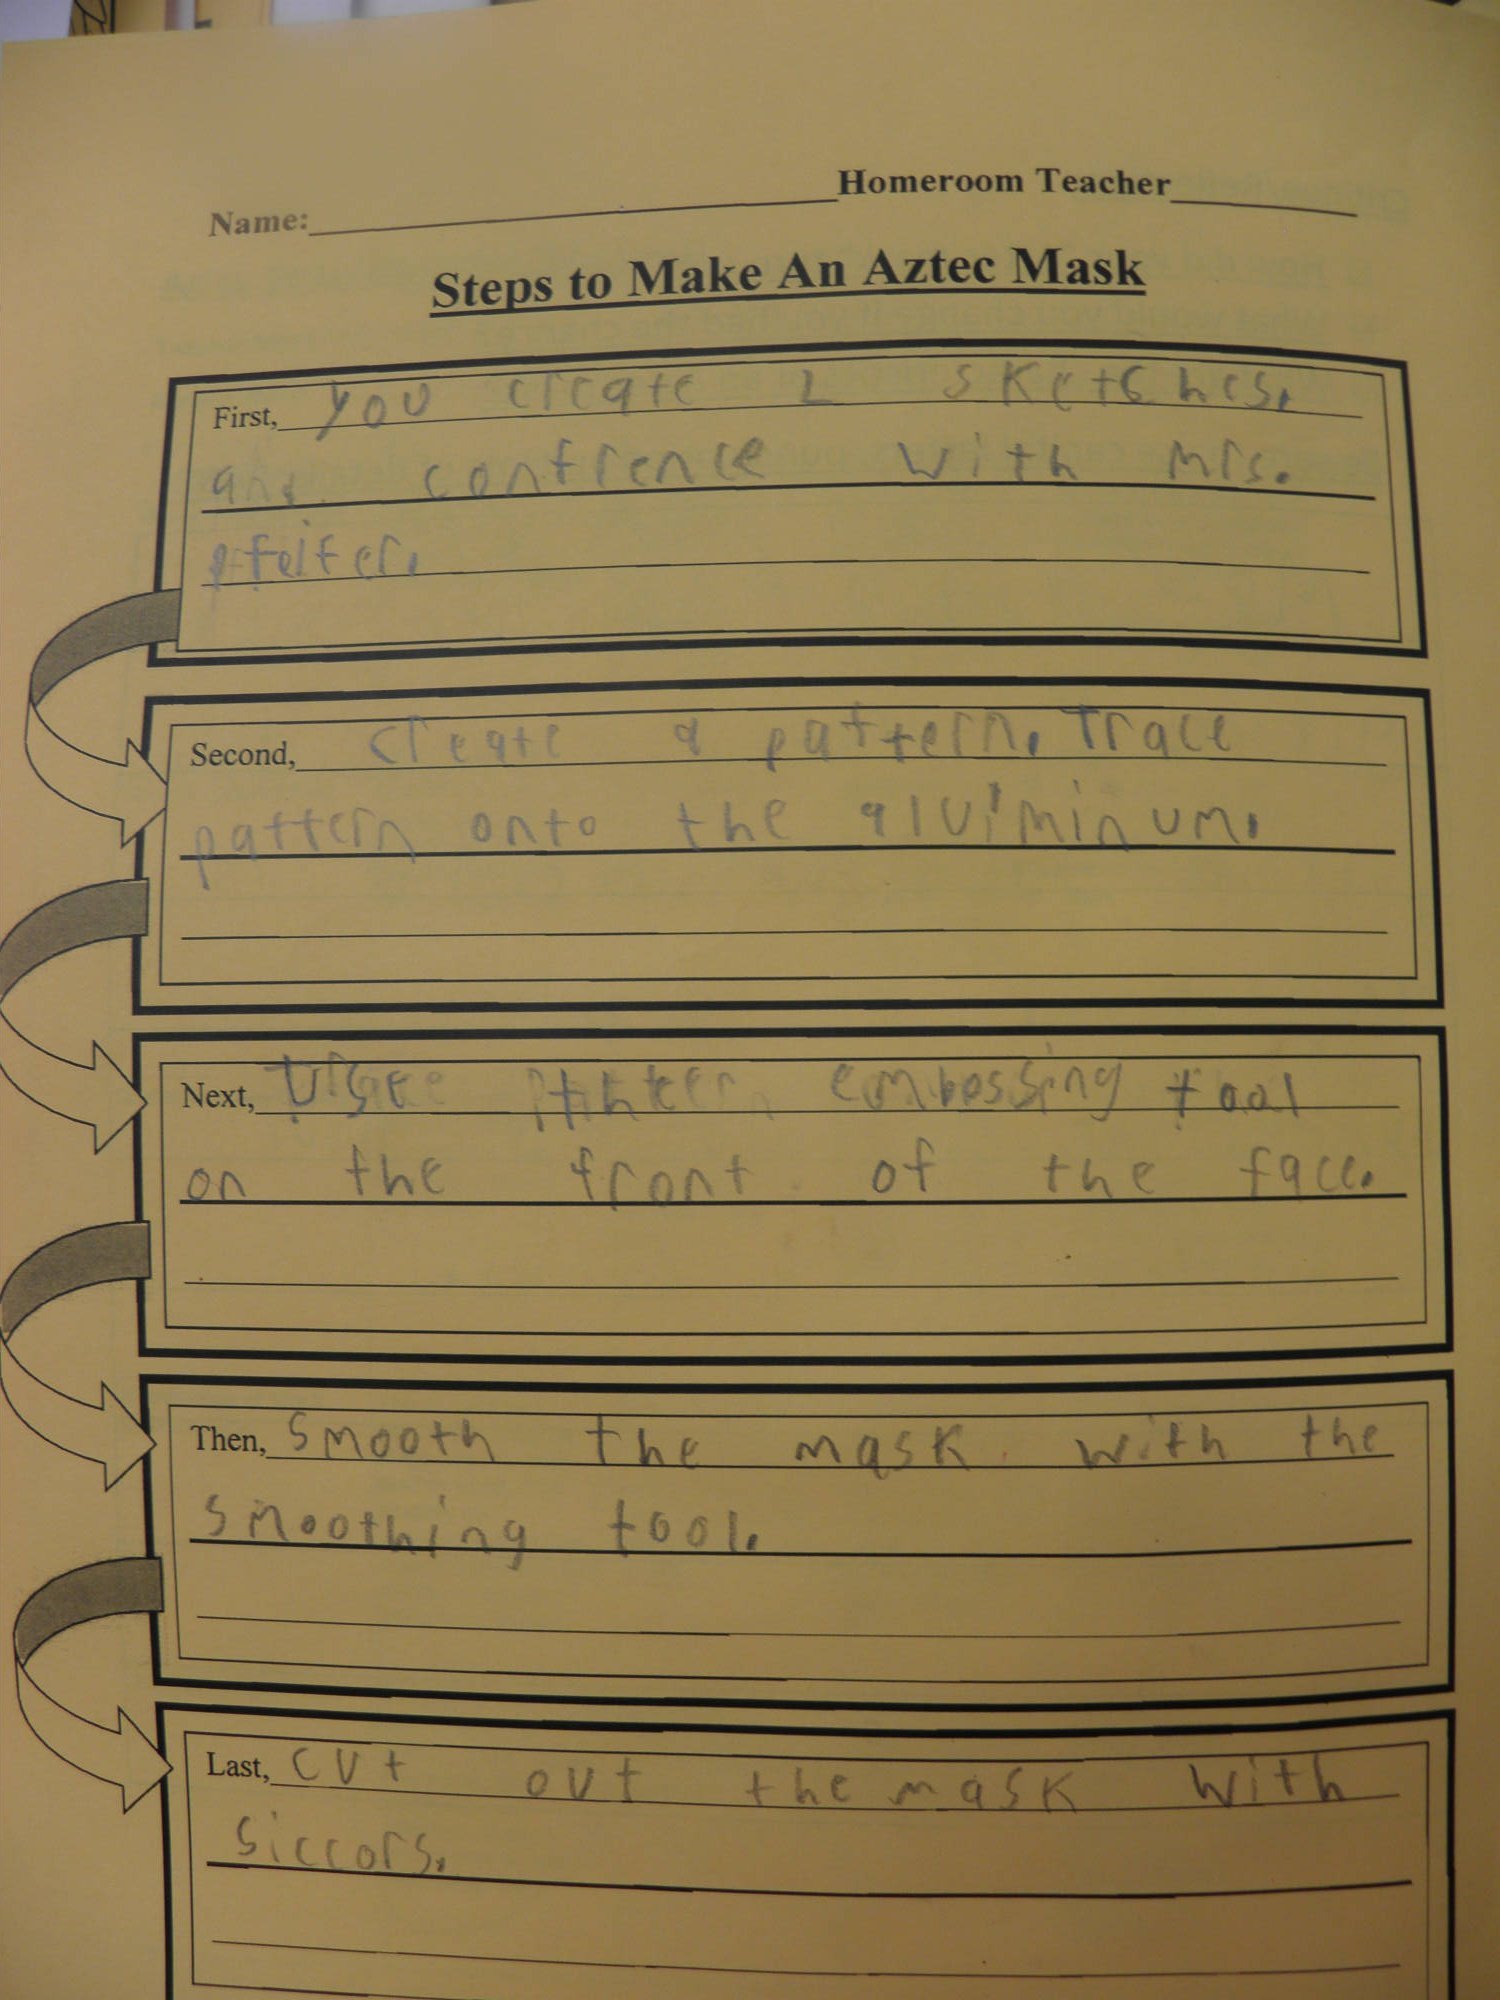 Name: Homeroom Teacher
Steps to Make An Aztec Mask
First, you create 2 sketches.
and confrence with Mrs.
pfeifer.
Second, create a pattern. Trace
pattern onto the aluiminum.
Next, Use embossing tool
on the front of the face.
Then, smooth the mask with the
smoothing tool.
Last, cut out the mask with
siccors.